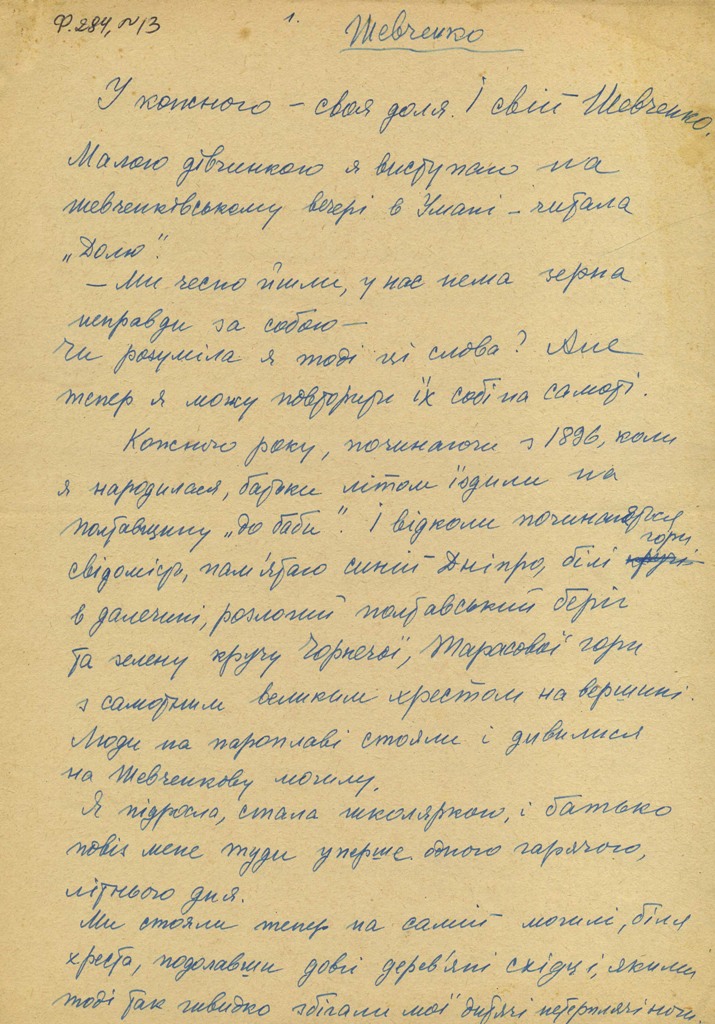 Ф. 284, № 13
1.
Шевченко
У кожного – своя доля. І свій Шевченко.
Малою дівчинкою я виступаю на
шевченківському вечері в Умані – читала
„Долю“.
– Ми чесно йшли, у нас нема зерна
неправди за собою –
Чи розуміла я тоді ці слова? Але
тепер я можу повторити їх собі на самоті.
Кожного року, починаючи з 1896, коли
я народилася, батьки літом їздили на
полтавщину „до баби“. І відколи починається
свідомість, пам'ятаю синій Дніпро, білі кручі гори
в далечині, розлогий полтавський беріг
та зелену кручу Чорнечої, Тарасової гори
з самотним великим хрестом на вершині.
Люди на пароплаві стояли і дивилися
на Шевченкову могилу.
Я підросла, стала школяркою, і батько
повіз мене туди уперше одного гарячого,
літнього дня.
Ми стояли тепер на самій могилі, біля
хреста, подолавши довгі дерев'яні східці, якими
тоді так швидко збігали мої дитячі нетерплячі ноги.